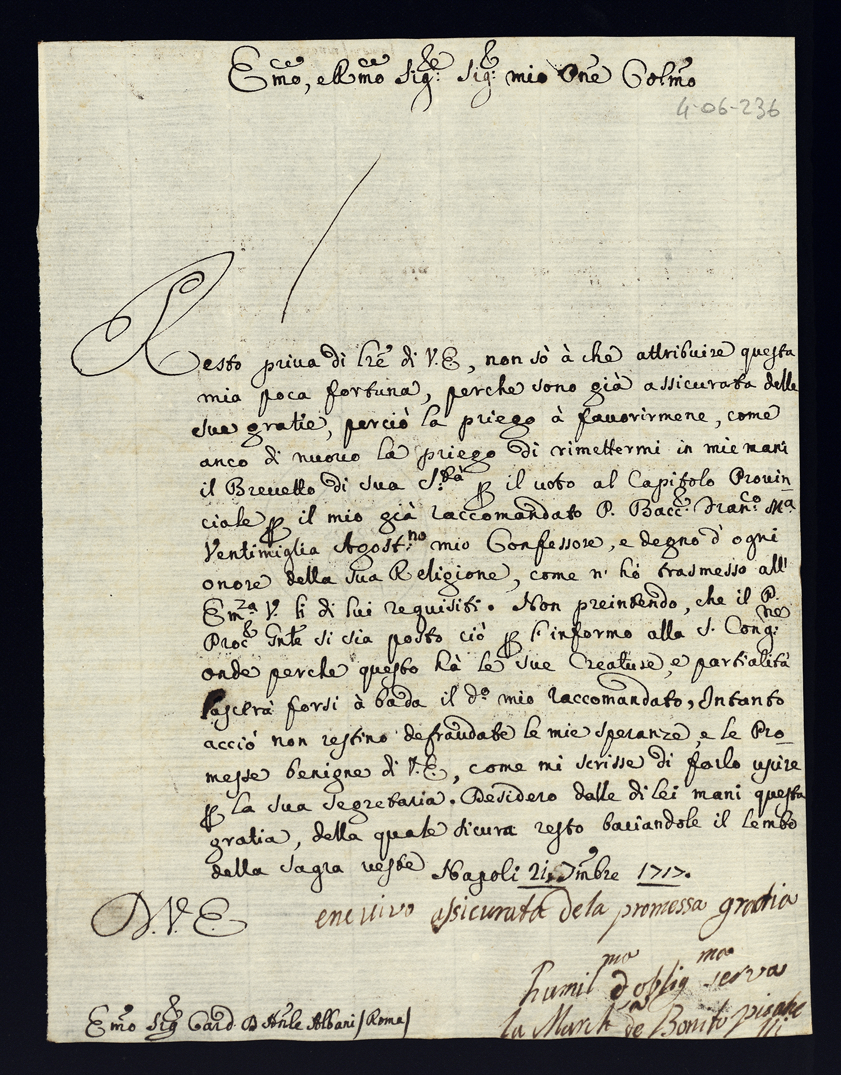 Em̃o, e R.mo Sig.re Sig.r mio Oñe Colm̃o
4-06-236
Resto priva di lr̃e di V.E, non sò à che attribuire questa
mia poca fortuna, perche sono già assicurata delle
sue gratie, perciò la priego à favorirmene, come
anco di nuovo la priego di rimettermi in mie mani
il Brevetto di sua S.tà ꝑ il voto al Capitolo Provin
ciale ꝑ il mio già raccomandato P. Bacc.r Fran.co M.a
Ventimiglia Agost.no mio Confessore, e degno d'ogni
onore della sua Religione, come n'hò trasmesso all'
Em.za V. li di lui requisiti. Non preintendo, che il P.
Proc.r Gñle si sia posto ciò ꝑ l'informo alla S. Cong.ne
onde perche questo hà le sue Creature, e partialità
lascerà forsi à bada il d.o mio raccomandato, Intanto
acciò non restino defraudate le mie speranze, e le Pro_
messe benigne di V.E, come mi scrisse di farlo uscire
ꝑ la sua segretaria. Desidero dalle di lei mani questa
gratia, della quale sicura resto baciandole il lembo
della sagra veste Napoli 21. 7m̃bre 1717.
D.V.E.
assicurata de la promessa gratia
humil.ma d oblig.ma serva
la March.a de Bonito
Em̃o Sig.r Card. D Añle Albani /Roma/